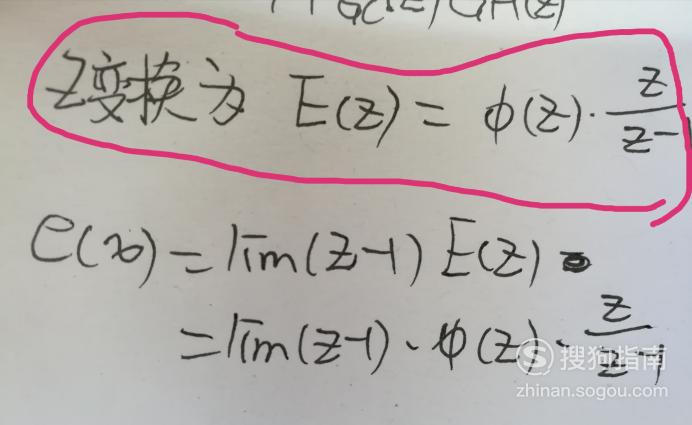 Z变换为 E(z) = φ(z)·z/(z-1
e(∞) = lim(z-1) E(z)
= lim(z-1)·φ(z)·z/(z-1
搜狗指南
zhinan.sogou.com